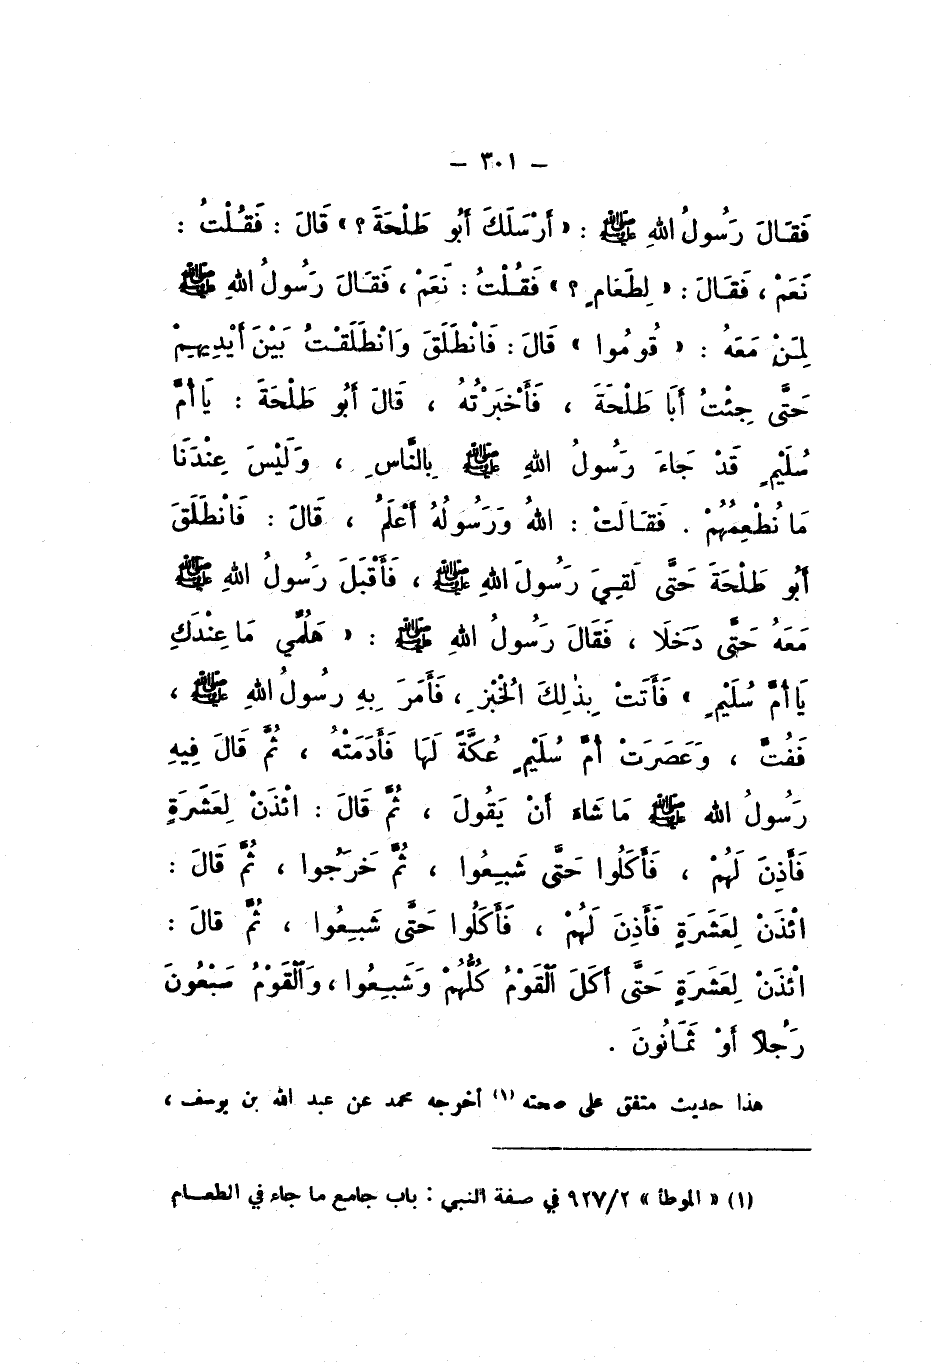 – ٣٠١ –
فَقَالَ رَسُولُ اللهِ ﷺ : « أَرْسَلَكَ أَبُو طَلْحَةَ ؟ » قَالَ : فَقُلْتُ :
نَعَمْ ، فَقَالَ : « لِطَعَامٍ ؟ » فَقُلْتُ : نَعَمْ ، فَقَالَ رَسُولُ اللهِ ﷺ
لِمَنْ مَعَهُ : « قُومُوا » قَالَ : فَانْطَلَقَ وَانْطَلَقْتُ بَيْنَ أَيْدِيهِمْ
حَتَّى جِئْتُ أَبَا طَلْحَةَ ، فَأَخْبَرْتُهُ ، قَالَ أَبُو طَلْحَةَ : يَا أُمَّ
سُلَيْمٍ قَدْ جَاءَ رَسُولُ اللهِ ﷺ بِالنَّاسِ ، وَلَيْسَ عِنْدَنَا
مَا نُطْعِمُهُمْ . فَقَالَتْ : اللهُ وَرَسُولُهُ أَعْلَمُ ، قَالَ : فَانْطَلَقَ
أَبُو طَلْحَةَ حَتَّى لَقِيَ رَسُولَ اللهِ ﷺ ، فَأَقْبَلَ رَسُولُ اللهِ ﷺ
مَعَهُ حَتَّى دَخَلَا ، فَقَالَ رَسُولُ اللهِ ﷺ : « هَلُمِّي مَا عِنْدَكِ
يَا أُمَّ سُلَيْمٍ » فَأَتَتْ بِذٰلِكَ الْخُبْزِ ، فَأَمَرَ بِهِ رسُولُ اللهِ ﷺ ،
فَفُتَّ ، وَعَصَرَتْ أُمُّ سُلَيْمٍ عُكَّةً لَهَا فَأَدَمَتْهُ ، ثُمَّ قَالَ فِيهِ
رَسُولُ الله ﷺ مَا شَاءَ أَنْ يَقُولَ ، ثُمَّ قَالَ : ائْذَنْ لِعَشَرَةٍ
فَأَذِنَ لَهُمْ ، فَأَكَلُوا حَتَّى شَبِعُوا ، ثُمَّ خَرَجُوا ، ثُمَّ قَالَ :
ائْذَنْ لِعَشَرَةٍ فَأَذِنَ لَهُمْ ، فَأَكَلُوا حَتَّى شَبِعُوا ، ثُمَّ قالَ :
ائْذَنْ لِعَشَرَةٍ حَتَّى أكَلَ الْقَوْمُ كُلُّهُمْ وَشَبِعُوا ، وَالْقَوْمُ سَبْعُونَ
رَجُلاً أَوْ ثَمَانُونَ .
هذا حديث متفق على صحته (١) أخرجه محمد عن عبد الله بن يوسف ،
(١) « الموطأ » ٩٢٧/٢ في صفة النبي : باب جامع ما جاء في الطعام